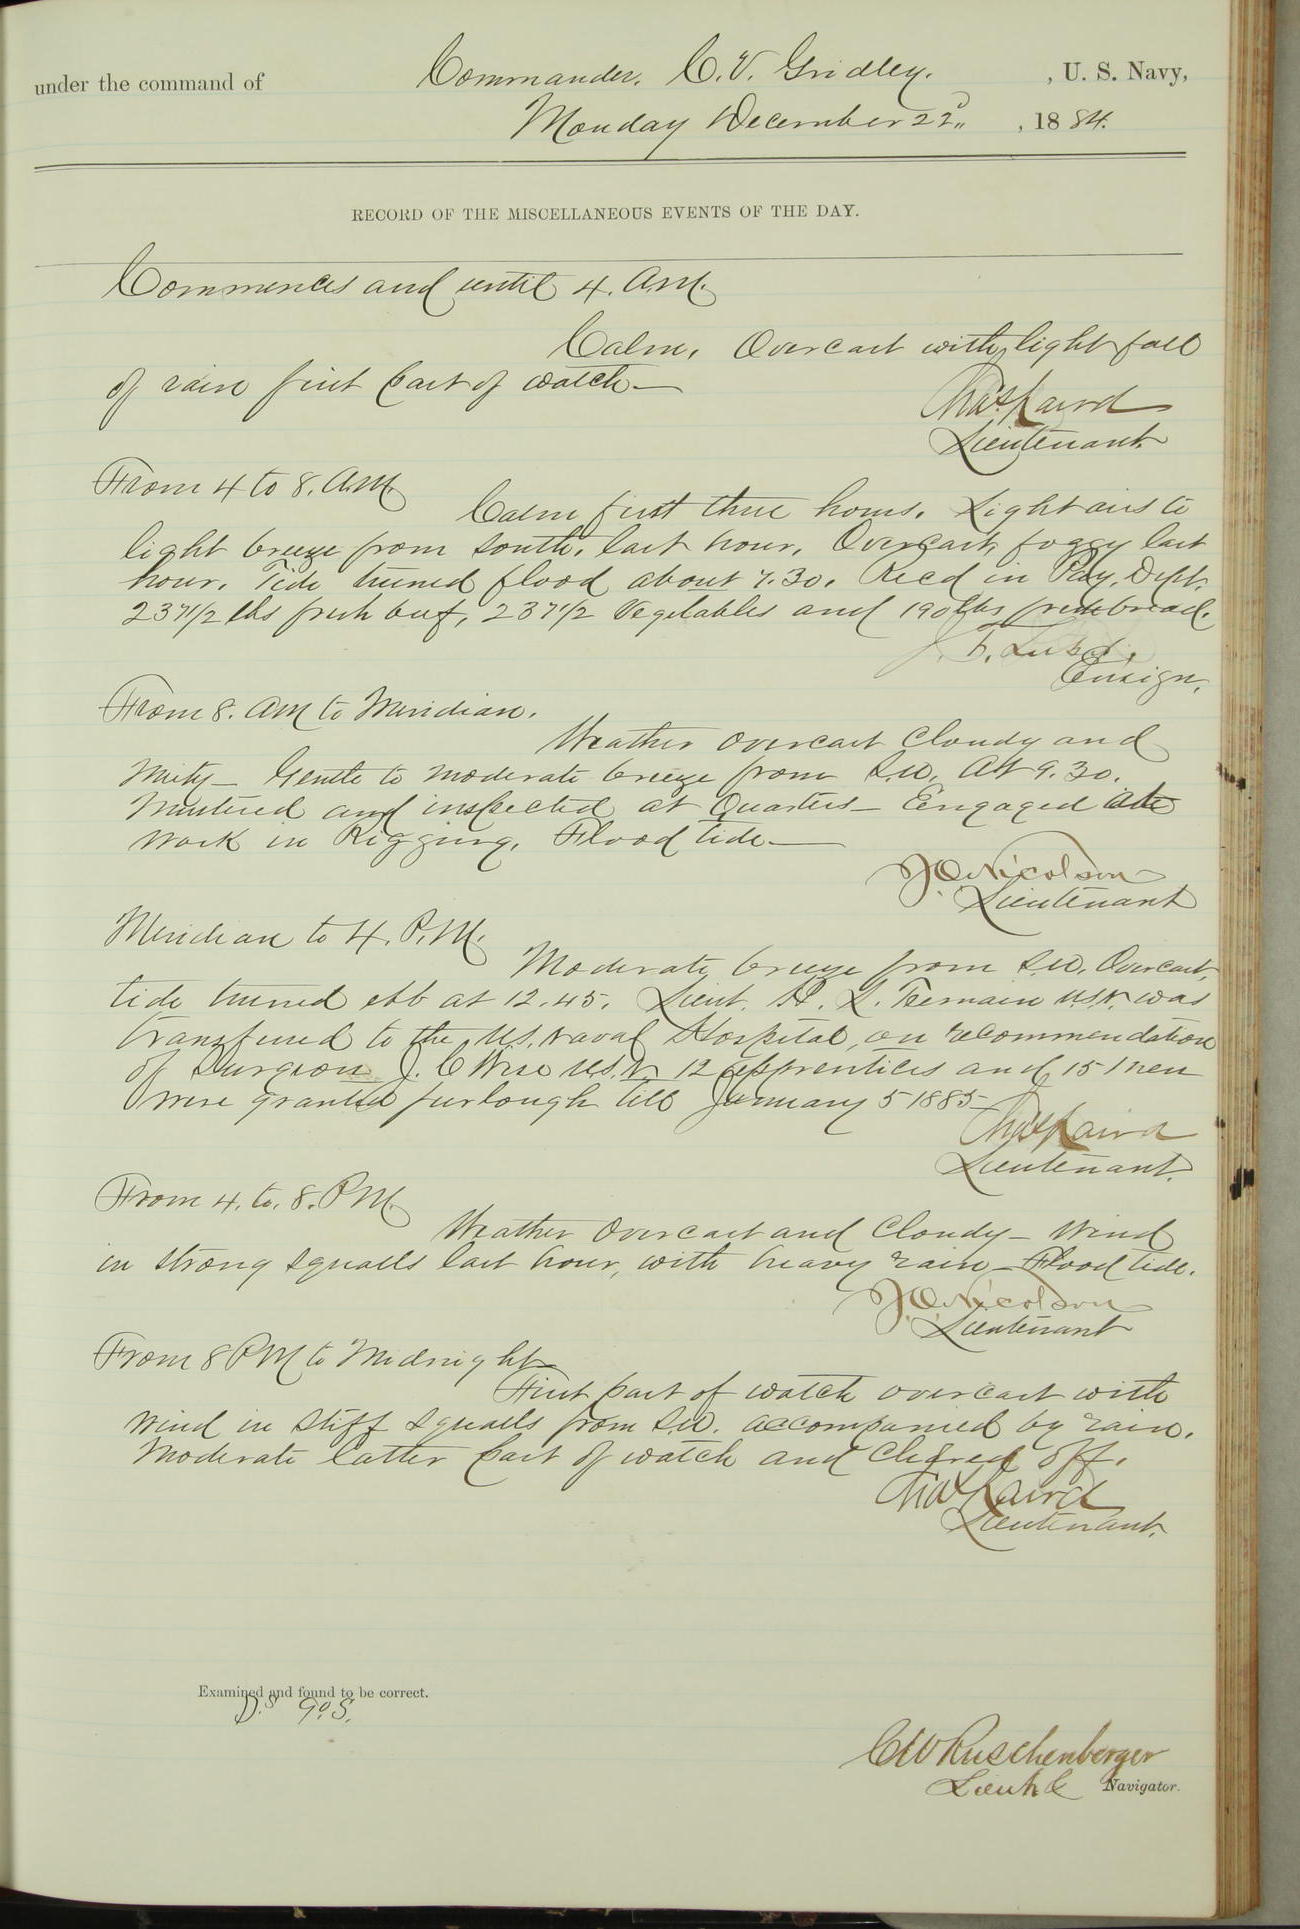 under the command of Commander. C. V. Gridley. , U. S. Navy,
Monday December 22d, , 1884.
RECORD OF THE MISCELLANEOUS EVENTS OF THE DAY.
Commences and until 4. A.M.
Calm. Overcast with light fall
of rain first part of watch—
Chas Laird
Lieutenant.
From 4 to 8. A.M.
Calm first three hours. Light airs to
light breeze from South, last hour. Overcast, foggy last
hour. Tide turned flood about 7.30. Recd in Pay. Dept.
237 1/2 lbs fresh beef, 237 1/2 Vegetables and 190 lbs fresh bread.
J. F. Luby,
Ensign.
From 8. AM to Meridian.
Weather overcast cloudy and
misty— Gentle to moderate breeze from S.W. At 9.30.
Mustered and inspected at Quarters— Engaged at
work in Rigging. Flood tide—
J.O. Nicolson
Lieutenant
Meridian to 4. P.M.
Moderate breeze from S.W. Overcast,
tide turned ebb at 12.45. Lieut. H. L. Tremain U.S.N. was
transferred to the U.S. Naval Hospital, on recommendation
of Surgeon J. C Wise U.S.N. 12 apprentices and 15 men
were granted furlough till January 5 1885—
Chas Laird
Lieutenant.
From 4. to. 8. P M.
Weather Overcast and Cloudy— Wind
in strong squalls last hour, with heavy rain— Flood tide.
J.O. Nicolson
Lieutenant
From 8 PM to Midnight—
First part of watch overcast with
wind in stiff squalls from S.W. accompanied by rain.
Moderate latter part of watch and cleared off.
Chas Laird
Lieutenant.
Examined and found to be correct.
C W Ruschenberger
Lieut. & Navigator.